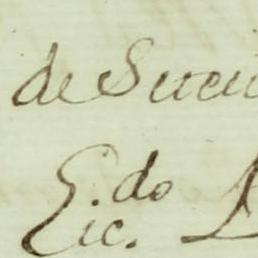 de Sucu
Lic.do